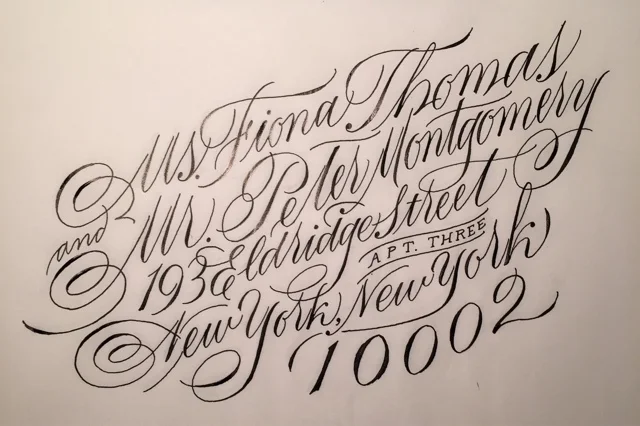 Ms. Fiona Thomas
and Mr. Peter Montgomery
193 Eldridge Street
APT. THREE
New York, New York
10002